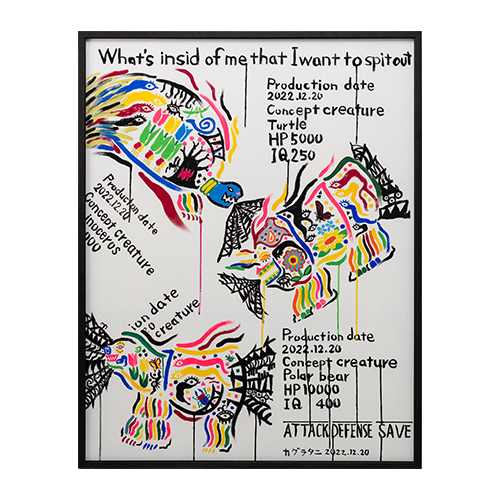 What's insid of me that I want to spit out
Production date
2022.12.20
Concept creature
Turtle
HP 5000
IQ 250
Production date
2022.12.20
Concept creature
inoceros
000
ion date
creature
Production date
2022.12.20
Concept creature
Polar bear
HP 10000
IQ 400
ATTACK DEFENSE SAVE
カグラタニ 2022.12.20